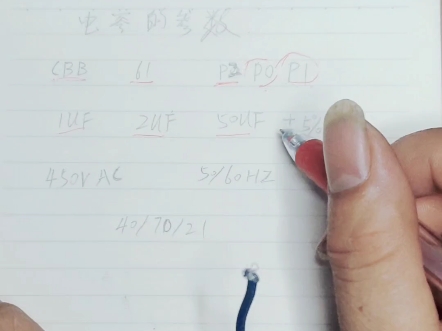 电容的参数
CBB 61 P2 P0 P1
1UF 2UF 50UF ±5%
450VAC 50/60HZ
40/70/21